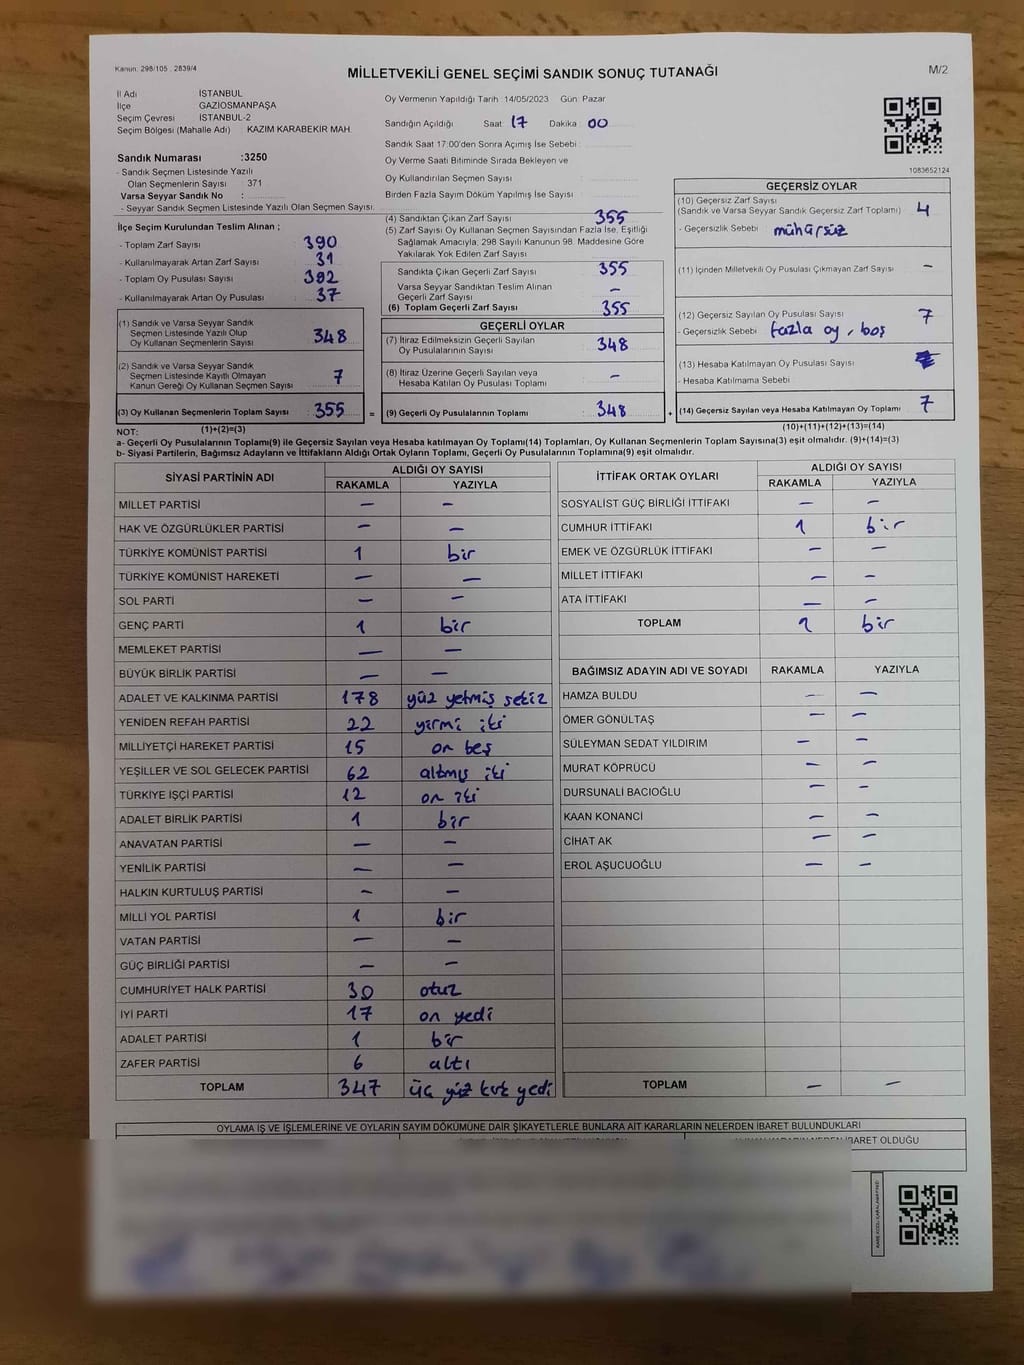 Kanun: 298/105 , 2839/4
MİLLETVEKİLİ GENEL SEÇİMİ SANDIK SONUÇ TUTANAĞI
M/2
İl Adı İSTANBUL
İlçe GAZİOSMANPAŞA
Seçim Çevresi İSTANBUL-2
Seçim Bölgesi (Mahalle Adı) : KAZIM KARABEKİR MAH.
Sandık Numarası :3250
- Sandık Seçmen Listesinde Yazılı
Olan Seçmenlerin Sayısı : 371
Varsa Seyyar Sandık No :
- Seyyar Sandık Seçmen Listesinde Yazılı Olan Seçmen Sayısı.
İlçe Seçim Kurulundan Teslim Alınan ;
- Toplam Zarf Sayısı 390
- Kullanılmayarak Artan Zarf Sayısı 31
- Toplam Oy Pusulası Sayısı 392
- Kullanılmayarak Artan Oy Pusulası 37
(1) Sandık ve Varsa Seyyar Sandık
Seçmen Listesinde Yazılı Olup
Oy Kullanan Seçmenlerin Sayısı 348
(2) Sandık ve Varsa Seyyar Sandık
Seçmen Listesinde Kayıtlı Olmayan
Kanun Gereği Oy Kullanan Seçmen Sayısı 7
(3) Oy Kullanan Seçmenlerin Toplam Sayısı 355 =
(1)+(2)=(3)
Oy Vermenin Yapıldığı Tarih :14/05/2023 Gün: Pazar
Sandığın Açıldığı Saat 17 Dakika : 00
Sandık Saat 17:00'den Sonra Açımış İse Sebebi :
Oy Verme Saati Bitiminde Sırada Bekleyen ve
Oy Kullandırılan Seçmen Sayısı :
Birden Fazla Sayım Döküm Yapılmış İse Sayısı :
(4) Sandıktan Çıkan Zarf Sayısı 355
(5) Zarf Sayısı Oy Kullanan Seçmen Sayısından Fazla İse, Eşitliği
Sağlamak Amacıyla, 298 Sayılı Kanunun 98. Maddesine Göre
Yakılarak Yok Edilen Zarf Sayısı :
Sandıkta Çıkan Geçerli Zarf Sayısı 355
Varsa Seyyar Sandıktan Teslim Alınan
Geçerli Zarf Sayısı –
(6) Toplam Geçerli Zarf Sayısı 355
GEÇERLİ OYLAR
(7) İtiraz Edilmeksizin Geçerli Sayılan
Oy Pusulalarının Sayısı : 348
(8) İtiraz Üzerine Geçerli Sayılan veya
Hesaba Katılan Oy Pusulası Toplamı : –
(9) Geçerli Oy Pusulalarının Toplamı : 348 +
1083652124
GEÇERSİZ OYLAR
(10) Geçersiz Zarf Sayısı
(Sandık ve Varsa Seyyar Sandık Geçersiz Zarf Toplamı) : 4
- Geçersizlik Sebebi : mühürsüz
(11) İçinden Milletvekili Oy Pusulası Çıkmayan Zarf Sayısı : –
(12) Geçersiz Sayılan Oy Pusulası Sayısı : 7
- Geçersizlik Sebebi : fazla oy, boş
(13) Hesaba Katılmayan Oy Pusulası Sayısı
- Hesaba Katılmama Sebebi
(14) Geçersiz Sayılan veya Hesaba Katılmayan Oy Toplamı : 7
(10)+(11)+(12)+(13)=(14)
NOT:
a- Geçerli Oy Pusulalarının Toplamı(9) ile Geçersiz Sayılan veya Hesaba katılmayan Oy Toplamı(14) Toplamları, Oy Kullanan Seçmenlerin Toplam Sayısına(3) eşit olmalıdır. (9)+(14)=(3)
b- Siyasi Partilerin, Bağımsız Adayların ve İttifakların Aldığı Ortak Oyların Toplamı, Geçerli Oy Pusulalarının Toplamına(9) eşit olmalıdır.
SİYASİ PARTİNİN ADI ALDIĞI OY SAYISI
RAKAMLA YAZIYLA
MİLLET PARTİSİ – –
HAK VE ÖZGÜRLÜKLER PARTİSİ – –
TÜRKİYE KOMÜNİST PARTİSİ 1 bir
TÜRKİYE KOMÜNİST HAREKETİ – –
SOL PARTİ – –
GENÇ PARTİ 1 bir
MEMLEKET PARTİSİ – –
BÜYÜK BİRLİK PARTİSİ – –
ADALET VE KALKINMA PARTİSİ 178 yüz yetmiş sekiz
YENİDEN REFAH PARTİSİ 22 yirmi iki
MİLLİYETÇİ HAREKET PARTİSİ 15 on beş
YEŞİLLER VE SOL GELECEK PARTİSİ 62 altmış iki
TÜRKİYE İŞÇİ PARTİSİ 12 on iki
ADALET BİRLİK PARTİSİ 1 bir
ANAVATAN PARTİSİ – –
YENİLİK PARTİSİ – –
HALKIN KURTULUŞ PARTİSİ – –
MİLLİ YOL PARTİSİ 1 bir
VATAN PARTİSİ – –
GÜÇ BİRLİĞİ PARTİSİ – –
CUMHURİYET HALK PARTİSİ 30 otuz
İYİ PARTİ 17 on yedi
ADALET PARTİSİ 1 bir
ZAFER PARTİSİ 6 altı
TOPLAM 347 üç yüz kırk yedi
İTTİFAK ORTAK OYLARI ALDIĞI OY SAYISI
RAKAMLA YAZIYLA
SOSYALİST GÜÇ BİRLİĞİ İTTİFAKI – –
CUMHUR İTTİFAKI 1 bir
EMEK VE ÖZGÜRLÜK İTTİFAKI – –
MİLLET İTTİFAKI – –
ATA İTTİFAKI – –
TOPLAM 1 bir
BAĞIMSIZ ADAYIN ADI VE SOYADI RAKAMLA YAZIYLA
HAMZA BULDU – –
ÖMER GÖNÜLTAŞ – –
SÜLEYMAN SEDAT YILDIRIM – –
MURAT KÖPRÜCÜ – –
DURSUNALİ BACIOĞLU – –
KAAN KONANCİ – –
CİHAT AK – –
EROL AŞUCUOĞLU – –
TOPLAM – –
OYLAMA İŞ VE İŞLEMLERİNE VE OYLARIN SAYIM DÖKÜMÜNE DAİR ŞİKAYETLERLE BUNLARA AİT KARARLARIN NELERDEN İBARET BULUNDUKLARI
İBARET OLDUĞU